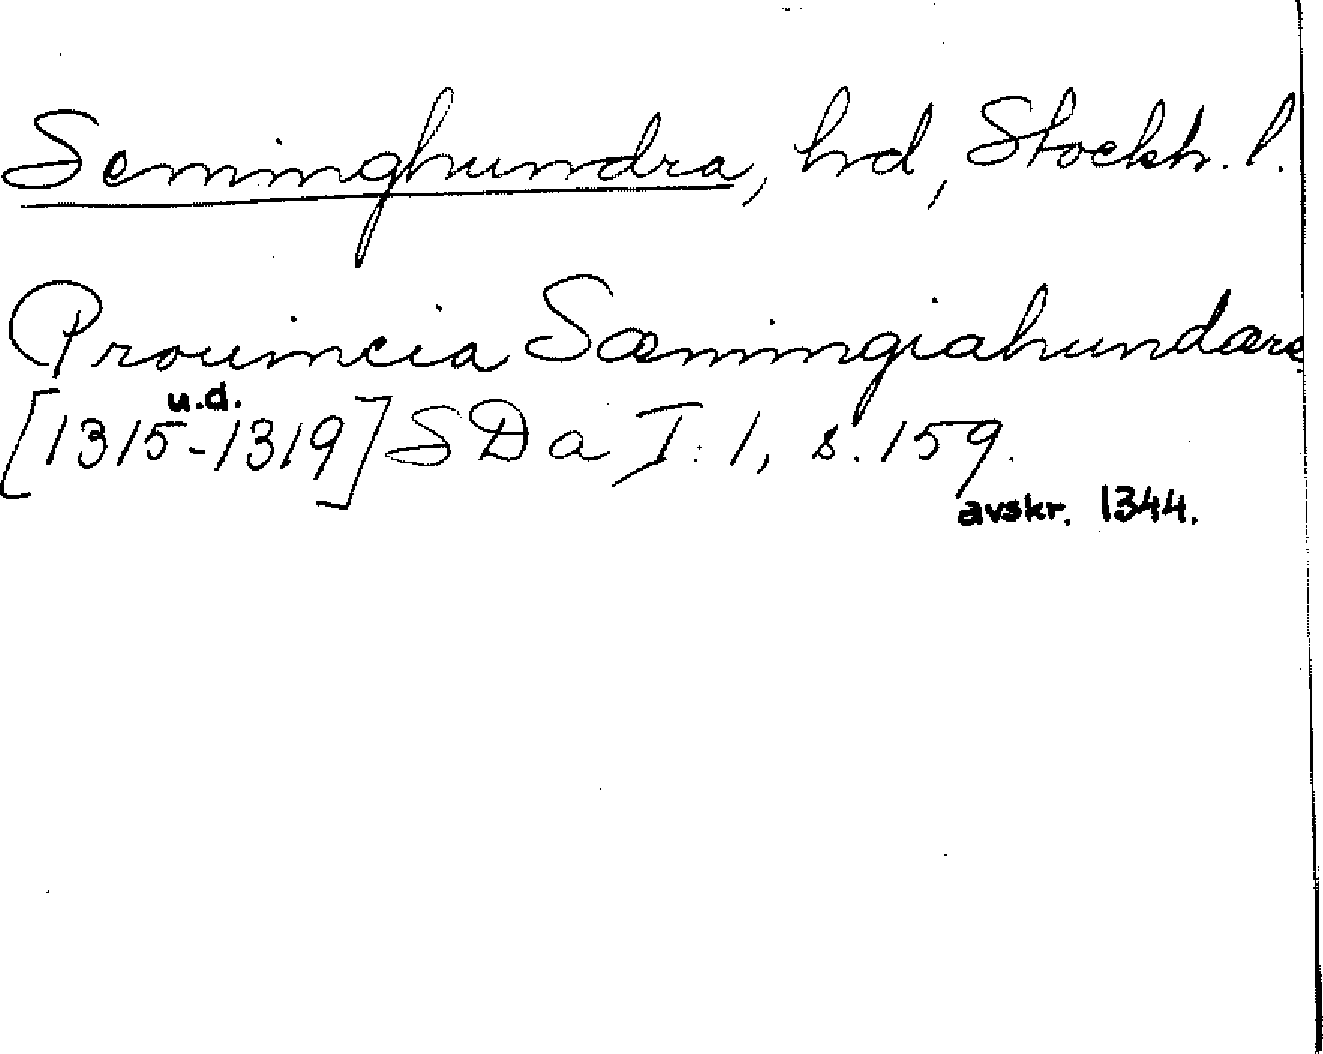 Seminghundra, hd, Stockh. l.
Prouincia Sæmingiahundare
u.d.
[1315-1319] SDa I:1, s. 159.
avskr. 1344.